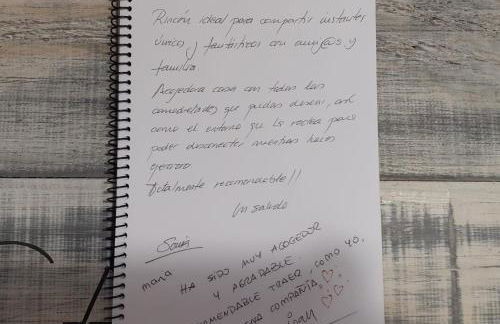 Rincón ideal para compartir instantes
únicos y fantásticos con amig@s y
familia
Acogedora casa con todas las
comodidades que puedas desear, así
como el entorno que la rodea para
poder desconectar mientras haces
Totalmente recomendable!!
Un saludo
Sonia
HA SIDO MUY ACOGEDOR
Y AGRADABLE.
OMENDABLE TRAER, COMO YO,
ENA COMPAÑIA.